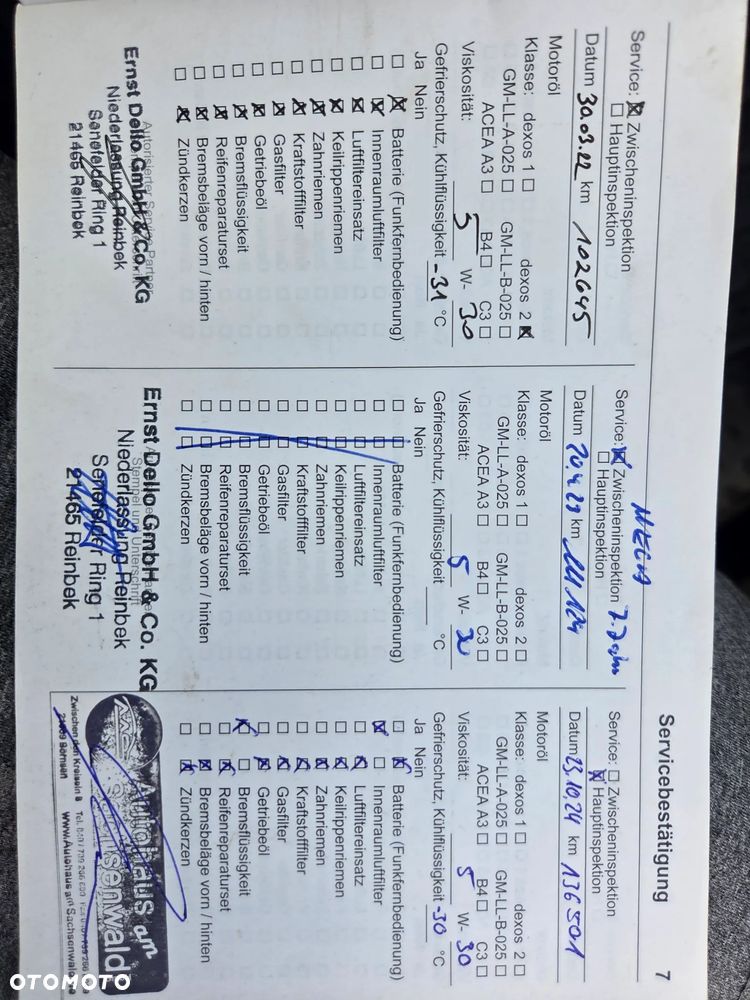 Servicebestätigung
7
Service: ☒ Zwischeninspektion
☐ Hauptinspektion
Datum 30.03.22 km 102645
Motoröl
Klasse: dexos 1 ☐ dexos 2 ☒
GM-LL-A-025 ☐ GM-LL-B-025 ☐
ACEA A3 ☐ B4 ☐ C3 ☐
Viskosität: 5 W- 30
Gefrierschutz, Kühlflüssigkeit -31 °C
Ja Nein
☐ ☒ Batterie (Funkfernbedienung)
☐ ☒ Innenraumluftfilter
☐ ☒ Luftfiltereinsatz
☐ ☒ Keilrippenriemen
☐ ☒ Zahnriemen
☐ ☒ Kraftstofffilter
☐ ☒ Gasfilter
☐ ☒ Getriebeöl
☐ ☒ Bremsflüssigkeit
☐ ☒ Reifenreparaturset
☐ ☒ Bremsbeläge vorn / hinten
☐ ☒ Zündkerzen
Autorisierter Service Partner
Ernst Dello GmbH & Co. KG
Niederlassung Reinbek
Senefelder Ring 1
21465 Reinbek
Service: ☒ Zwischeninspektion
☐ Hauptinspektion
Datum 20.4.23 km
Motoröl
Klasse: dexos 1 ☐ dexos 2 ☐
GM-LL-A-025 ☐ GM-LL-B-025 ☐
ACEA A3 ☐ B4 ☐ C3 ☐
Viskosität: 5 W-
Gefrierschutz, Kühlflüssigkeit °C
Ja Nein
☐ ☐ Batterie (Funkfernbedienung)
☐ ☐ Innenraumluftfilter
☐ ☐ Luftfiltereinsatz
☐ ☐ Keilrippenriemen
☐ ☐ Zahnriemen
☐ ☐ Kraftstofffilter
☐ ☐ Gasfilter
☐ ☐ Getriebeöl
☐ ☐ Bremsflüssigkeit
☐ ☐ Reifenreparaturset
☐ ☐ Bremsbeläge vorn / hinten
☐ ☐ Zündkerzen
Ernst Dello GmbH & Co. KG
Stempel und Unterschrift
Niederlassung Reinbek
Senefelder Ring 1
21465 Reinbek
Service: ☐ Zwischeninspektion
☒ Hauptinspektion
Datum 23.10.24 km 136501
Motoröl
Klasse: dexos 1 ☐ dexos 2 ☐
GM-LL-A-025 ☐ GM-LL-B-025 ☐
ACEA A3 ☐ B4 ☐ C3 ☐
Viskosität: 5 W- 30
Gefrierschutz, Kühlflüssigkeit -30 °C
Ja Nein
☐ ☒ Batterie (Funkfernbedienung)
☒ ☐ Innenraumluftfilter
☐ ☒ Luftfiltereinsatz
☐ ☒ Keilrippenriemen
☐ ☒ Zahnriemen
☐ ☒ Kraftstofffilter
☐ ☒ Gasfilter
☐ ☒ Getriebeöl
☒ ☐ Bremsflüssigkeit
☐ ☒ Reifenreparaturset
☐ ☒ Bremsbeläge vorn / hinten
☐ ☒ Zündkerzen
Autohaus am
Sachsenwald
Zwischen den Kreiseln 8
Börnsen
OTOMOTO